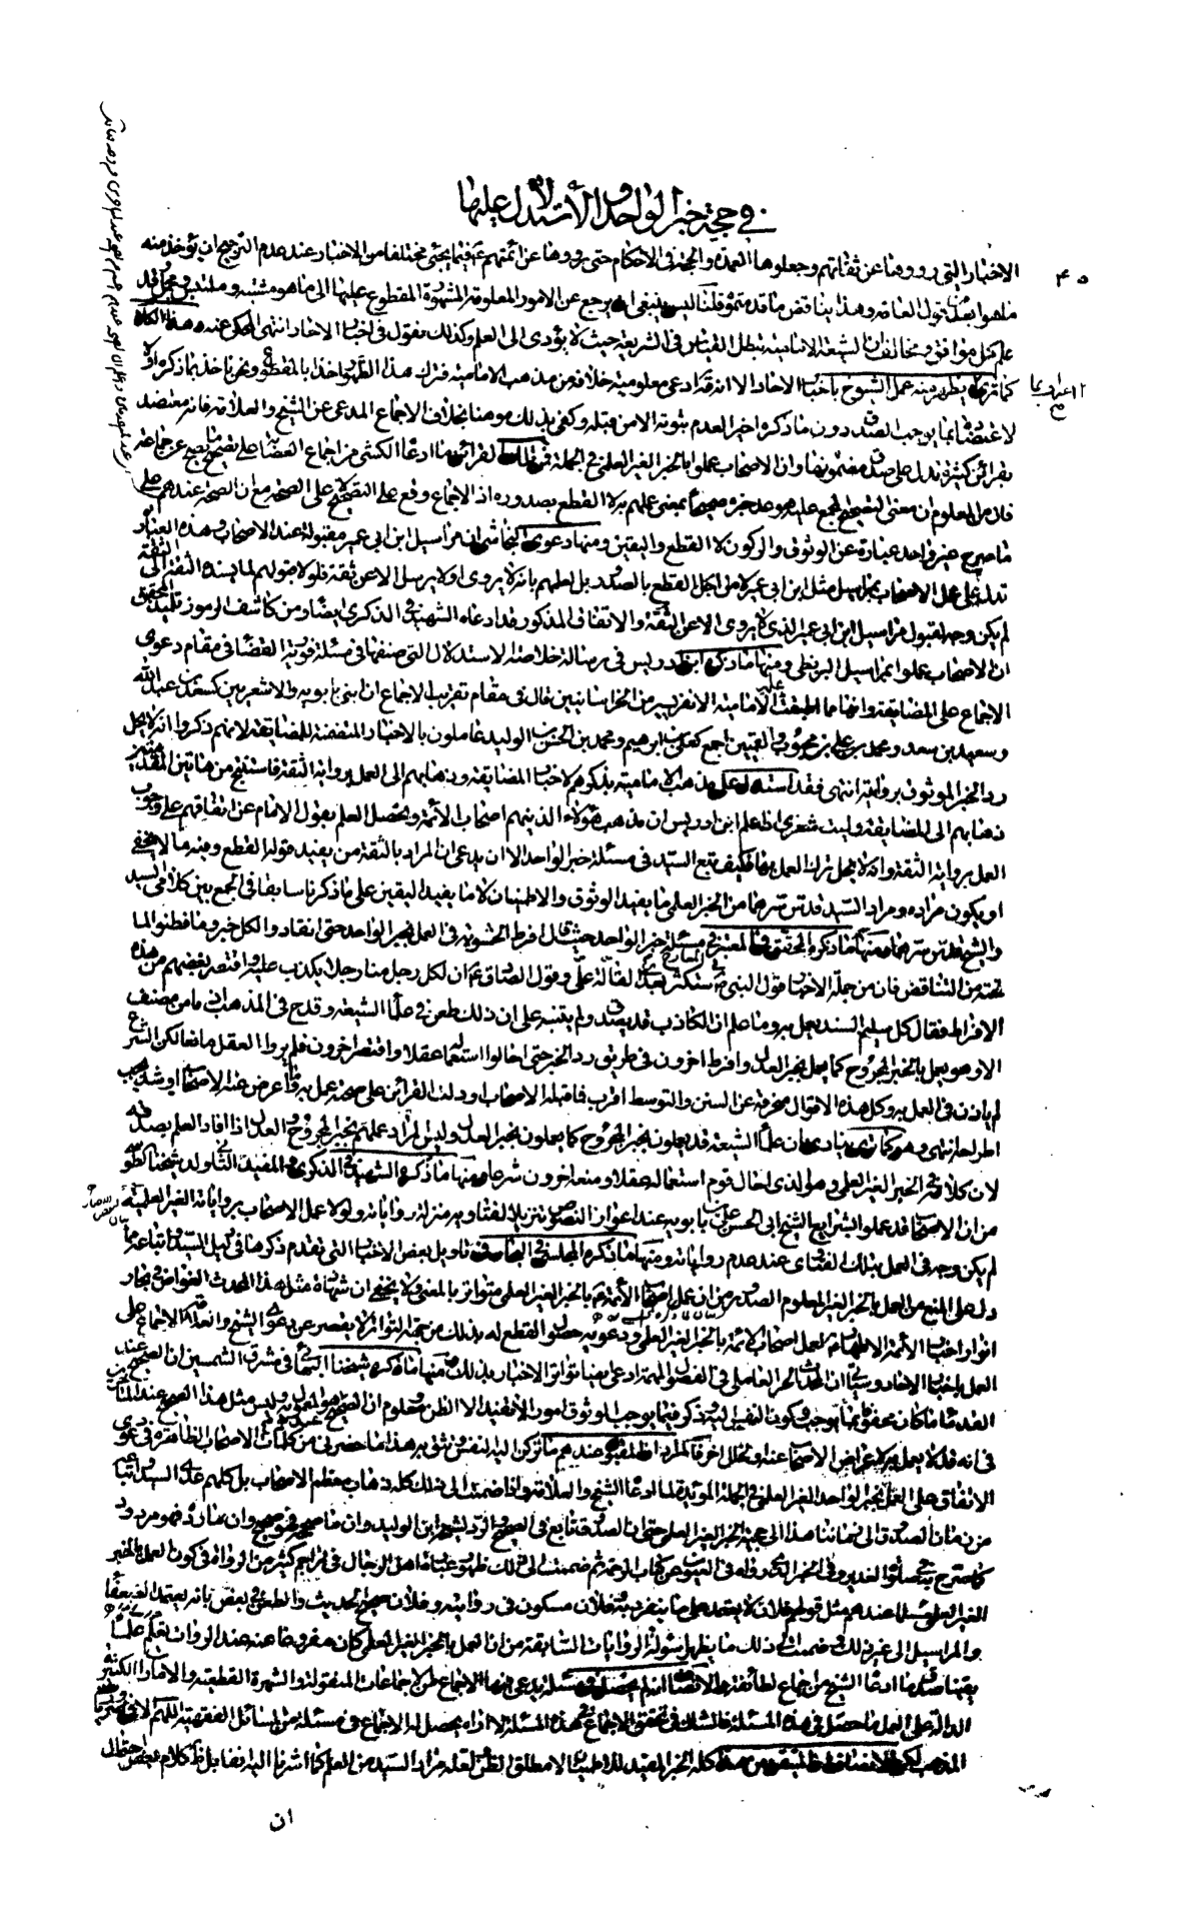 في حجية خبر الواحد والاستدلال عليها
٤٠
الاخبار التي رووها عن ثقاتهم وجعلوها العمدة والحجة في الاحكام حتى رووا عن ائمتهم ع فيما يجيء مختلفا من الاخبار عند عدم الترجيح ان يؤخذ منه
ما هو ابعد من قول العامة وهذا يناقض ما قدمتموه قلنا ليس ينبغي ان يرجع عن الامور المعلومة المشهورة المقطوع عليها الى ما هو مشتبه وملتبس ومجمل وقد
علم كل موافق ومخالف ان الشيعة الامامية تبطل القياس في الشريعة حيث لا يؤدي الى العلم وكذلك نقول في اخبار الاحاد انتهى المحكي عنه وهذا الكلام
كما ترى يظهر منه عمل الشيوخ باخبار الاحاد الا انه قد ادعى معلومية خلافه من مذهب الامامية فترك هذا الظهور اخذا بالمقطوع ونحن ناخذ بما ذكره اولا
لاعتضاده بما يوجب الصدق دون ما ذكره اخيرا لعدم ثبوته الا من قبله وكفى بذلك موهنا بخلاف الاجماع المدعى عن الشيخ والعلامة فانه معتضد
بقرائن كثيرة تدل على صدق مضمونها وان الاصحاب عملوا بالخبر الغير العلمي في الجملة فمن تلك القرائن ما ادعاه الكشي من اجماع العصابة على تصحيح ما يصح عن جماعة
فان من المعلوم ان معنى التصحيح المجمع عليه هو عد خبره صحيحا بمعنى عملهم به لا القطع بصدوره اذ الاجماع وقع على التصحيح لا على الصحة مع ان الصحة عندهم على
ما صرح غير واحد عبارة عن الوثوق والركون لا القطع واليقين ومنها دعوى النجاشي ان مراسيل ابن ابي عمير مقبولة عند الاصحاب وهذه العبارة
تدل على عمل الاصحاب بمراسيل مثل ابن ابي عمير لا من اجل القطع بالصدور بل لعلمهم بانه لا يروي او لا يرسل الا عن ثقة فلولا قبولهم لما يسنده الثقة الى الثقة
لم يكن وجه لقبول مراسيل ابن ابي عمير الذي لا يروي الا عن الثقة والاتفاق المذكور قد ادعاه الشهيد في الذكرى ايضا ومن كاشف الرموز تلميذ المحقق
ان الاصحاب عملوا بمراسيل البزنطي ومنها ما ذكره ابن ادريس في رسالة خلاصة الاستدلال التي صنفها في مسئلة فورية القضاء في مقام دعوى
الاجماع على المضايقة وانها مما اطبقت عليه الامامية الا نفر يسير من الخراسانيين قال في مقام تقريب الاجماع ان ابني بابويه والاشعريين كسعد بن عبد الله
وسعيد بن سعد ومحمد بن علي بن محبوب والقميين اجمع كعلي بن ابراهيم ومحمد بن الحسن بن الوليد عاملون بالاخبار المتضمنة للمضايقة لانهم ذكروا انه لا يحل
رد الخبر الموثوق برواته انتهى فقد استدل على مذهب الامامية بذكرهم لاخبار المضايقة وذهابهم الى العمل برواية الثقة فاستنتج من هاتين المقدمتين
ذهابهم الى المضايقة وليت شعري اذا علم ابن ادريس ان مذهب هؤلاء الذين هم اصحاب الائمة ويحصل العلم بقول الامام عن اتفاقهم على وجوب
العمل برواية الثقة وانه لا يحل ترك العمل بها فكيف تبع السيد في مسئلة خبر الواحد الا ان يدعى ان المراد بالثقة من يفيد قوله القطع وفيه ما لا يخفى
او يكون مراده ومراد السيد قدس سرهما من الخبر العلمي ما يفيد الوثوق والاطمينان لا ما يفيد اليقين على ما ذكرنا سابقا في الجمع بين كلامي السيد
والشيخ قدس سرهما ومنها ما ذكره المحقق في المعتبر في مسئلة خبر الواحد حيث قال افرط الحشوية في العمل بخبر الواحد حتى انقادوا لكل خبر وما فطنوا لما
تحته من التناقض فان من جملة الاخبار قول النبي ص ستكثر بعدي القالة علي وقول الصادق ع ان لكل رجل منا رجلا يكذب عليه واقتصر بعضهم من هذه
الافراط فقال كل سليم السند يعمل به وما علم ان الكاذب قد يصدق ولم يتنبه على ان ذلك طعن في علماء الشيعة وقدح في المذهب اذ ما من مصنف
الا وهو يعمل بالخبر المجروح كما يعمل بخبر العدل وافرط اخرون في طريق رد الخبر حتى احالوا استعماله عقلا واقتصر اخرون فلم يروا العقل مانعا لكن الشرع
لم ياذن في العمل به وكل هذه الاقوال منحرفة عن السنن والتوسط اقرب فما قبله الاصحاب او دلت القرائن على صحته عمل به وما اعرض عنه الاصحاب او شذ يجب
اطراحه انتهى وهو كما ترى ينادي بان علماء الشيعة قد يعملون بخبر المجروح كما يعملون بخبر العدل وليس المراد عملهم بخبر المجروح والعدل اذا افاد العلم بصدقه
لان كلامه في الخبر الغير العلمي وهو الذي احال قوم استعماله عقلا ومنعه اخرون شرعا ومنها ما ذكره الشهيد في الذكرى والمفيد الثاني ولد شيخنا الطوسي
من ان الاصحاب قد عملوا بشرايع الشيخ ابي الحسن علي بن بابويه عند اعواز النصوص تنزيلا لفتاويه منزلة رواياته ولولا عمل الاصحاب برواياته الغير العلمية
لم يكن وجه في العمل بتلك الفتاوى عند عدم رواياته ومنها ما ذكره المجلسي في البحار في تاويل بعض الاخبار التي تقدم ذكرها في دليل السيد واتباعه مما
دل على المنع من العمل بالخبر الغير المعلوم الصدور من ان عمل اصحاب الائمة ع بالخبر الغير العلمي متواتر بالمعنى ولا يخفى ان شهادة مثل هذا المحدث الغواص في بحار
انوار اخبار الائمة الاطهار بعمل اصحاب الائمة بالخبر الغير العلمي ودعويه حصول القطع له بذلك من جهة التواتر لا يقصر عن دعوى الشيخ والعلامة الاجماع على
العمل باخبار الاحاد وسيأتي ان المحدث الحر العاملي في الفصول المهمة ادعى ايضا تواتر الاخبار بذلك ومنها ما ذكره شيخنا البهائي في مشرق الشمسين ان الصحيح عند
القدماء ما كان محفوفا بما يوجب ركون النفس اليه وذكر فيما يوجب الوثوق امورا لا تفيد الا الظن ومعلوم ان الصحيح عندهم هو المعمول به وليس مثل هذا الصحيح عند المتاخرين
في انه قد لا يعمل به لاعراض الاصحاب عنه او لخلل اخر فالمراد ان المقبول عندهم ما تركن اليه النفس وتثق به هذا ما حضرني من كلمات الاصحاب الظاهرة في دعوى
الاتفاق على العمل بخبر الواحد الغير العلمي في الجملة المؤيدة لما ادعاه الشيخ والعلامة واذا ضممت الى ذلك كله ذهاب معظم الاصحاب بل كلهم عدى السيد واتباعه
من زمان الصدوق الى زماننا هذا الى حجية الخبر الغير العلمي حتى ان الصدوق تابع في التصحيح والرد لشيخه ابن الوليد وان ما صححه فهو صحيح وان ما رده فهو مردود
كما صرح به في صلوة الغدير وفي الخبر الذي رواه في العيون عن كتاب الرحمة ثم ضممت الى ذلك ظهور عبارة اهل الرجال في تراجم كثير من الرواة في كون العمل بالخبر
الغير العلمي مسلما عندهم مثل قولهم فلان لا يعتمد على ما ينفرد به وفلان مسكون في روايته وفلان صحيح الحديث والطعن في بعض بانه يعتمد الضعفاء
والمراسيل الى غير ذلك وضممت الى ذلك ما يظهر من اسئلة الروايات السابقة من ان العمل بالخبر الغير العلمي كان مفروغا عنه عند الرواة تعلم علما
يقينا صدق ما ادعاه الشيخ من اجماع الطائفة والانصاف انه لم يحصل في مسئلة يدعى فيها الاجماع من الاجماعات المنقولة والشهرة القطعية والامارات الكثيرة
الدالة على العمل ما حصل في هذه المسئلة فالشاك في تحقق الاجماع في هذه المسئلة لا اراه يحصل له الاجماع في مسئلة من المسائل الفقهية اللهم الا في ضروريات
المذهب لكن الانصاف ان المتيقن من هذا كله الخبر المفيد للاطمينان لا مطلق الظن ولعله مراد السيد من العلم كما اشرنا اليه انفا بل ظاهر كلام بعض احتمال
ان